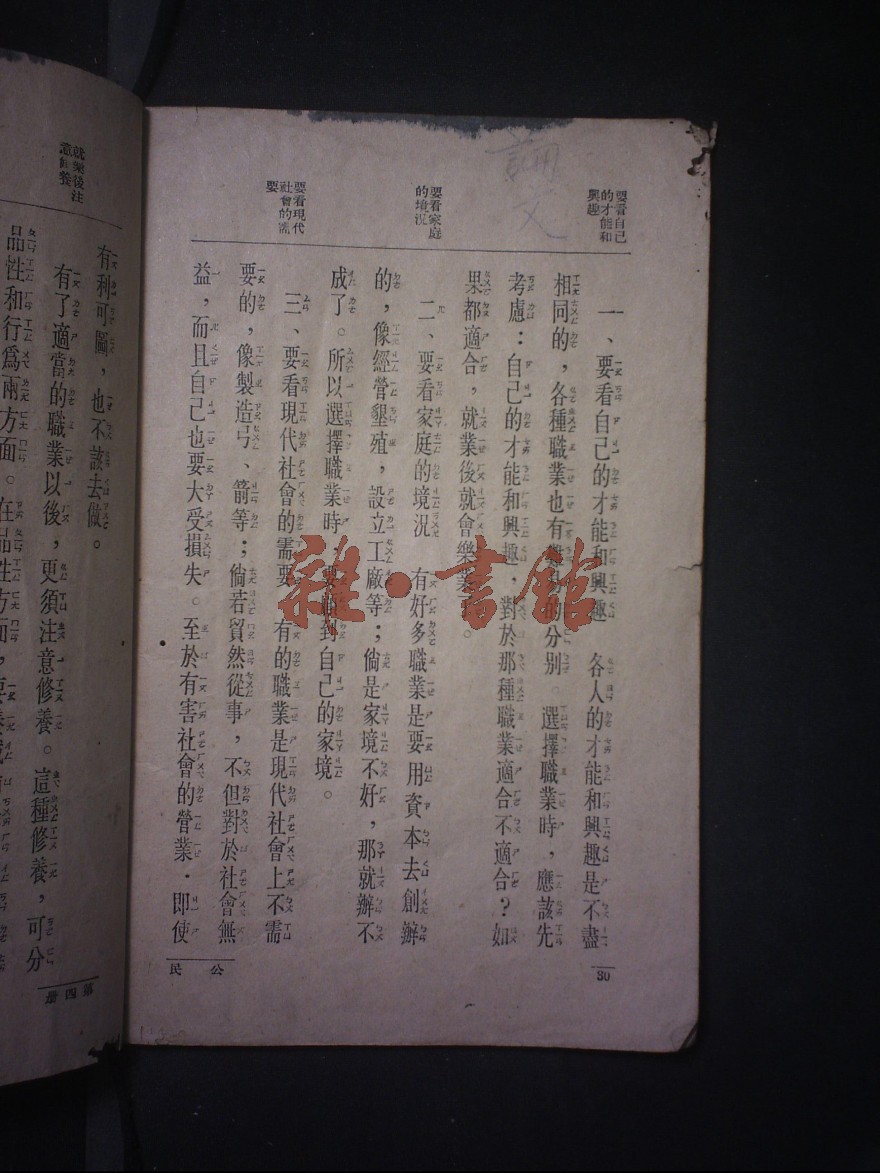 要看自己
的才能和
興趣
一、要看自己的才能和興趣 各人的才能和興趣是不盡
相同的，各種職業也有難易的分別。選擇職業時，應該先
考慮：自己的才能和興趣，對於那種職業適合不適合？如
果都適合，就業後就會樂業。
要看家庭
的境況
二、要看家庭的境況 有好多職業是要用資本去創辦
的，像經營墾殖，設立工廠等；倘是家境不好，那就辦不
成了。所以選擇職業時，要顧到自己的家境。
要看現代
社會的需
要
三、要看現代社會的需要 有的職業是現代社會上不需
要的，像製造弓、箭等；倘若貿然從事，不但對於社會無
益，而且自己也要大受損失。至於有害社會的營業．即使
30
公民
雜·書館
論文
有利可圖，也不該去做。
就業後注
意修養
有了適當的職業以後，更須注意修養。這種修養，可分
品性和行爲兩方面。在品性方面，要養成
第四册